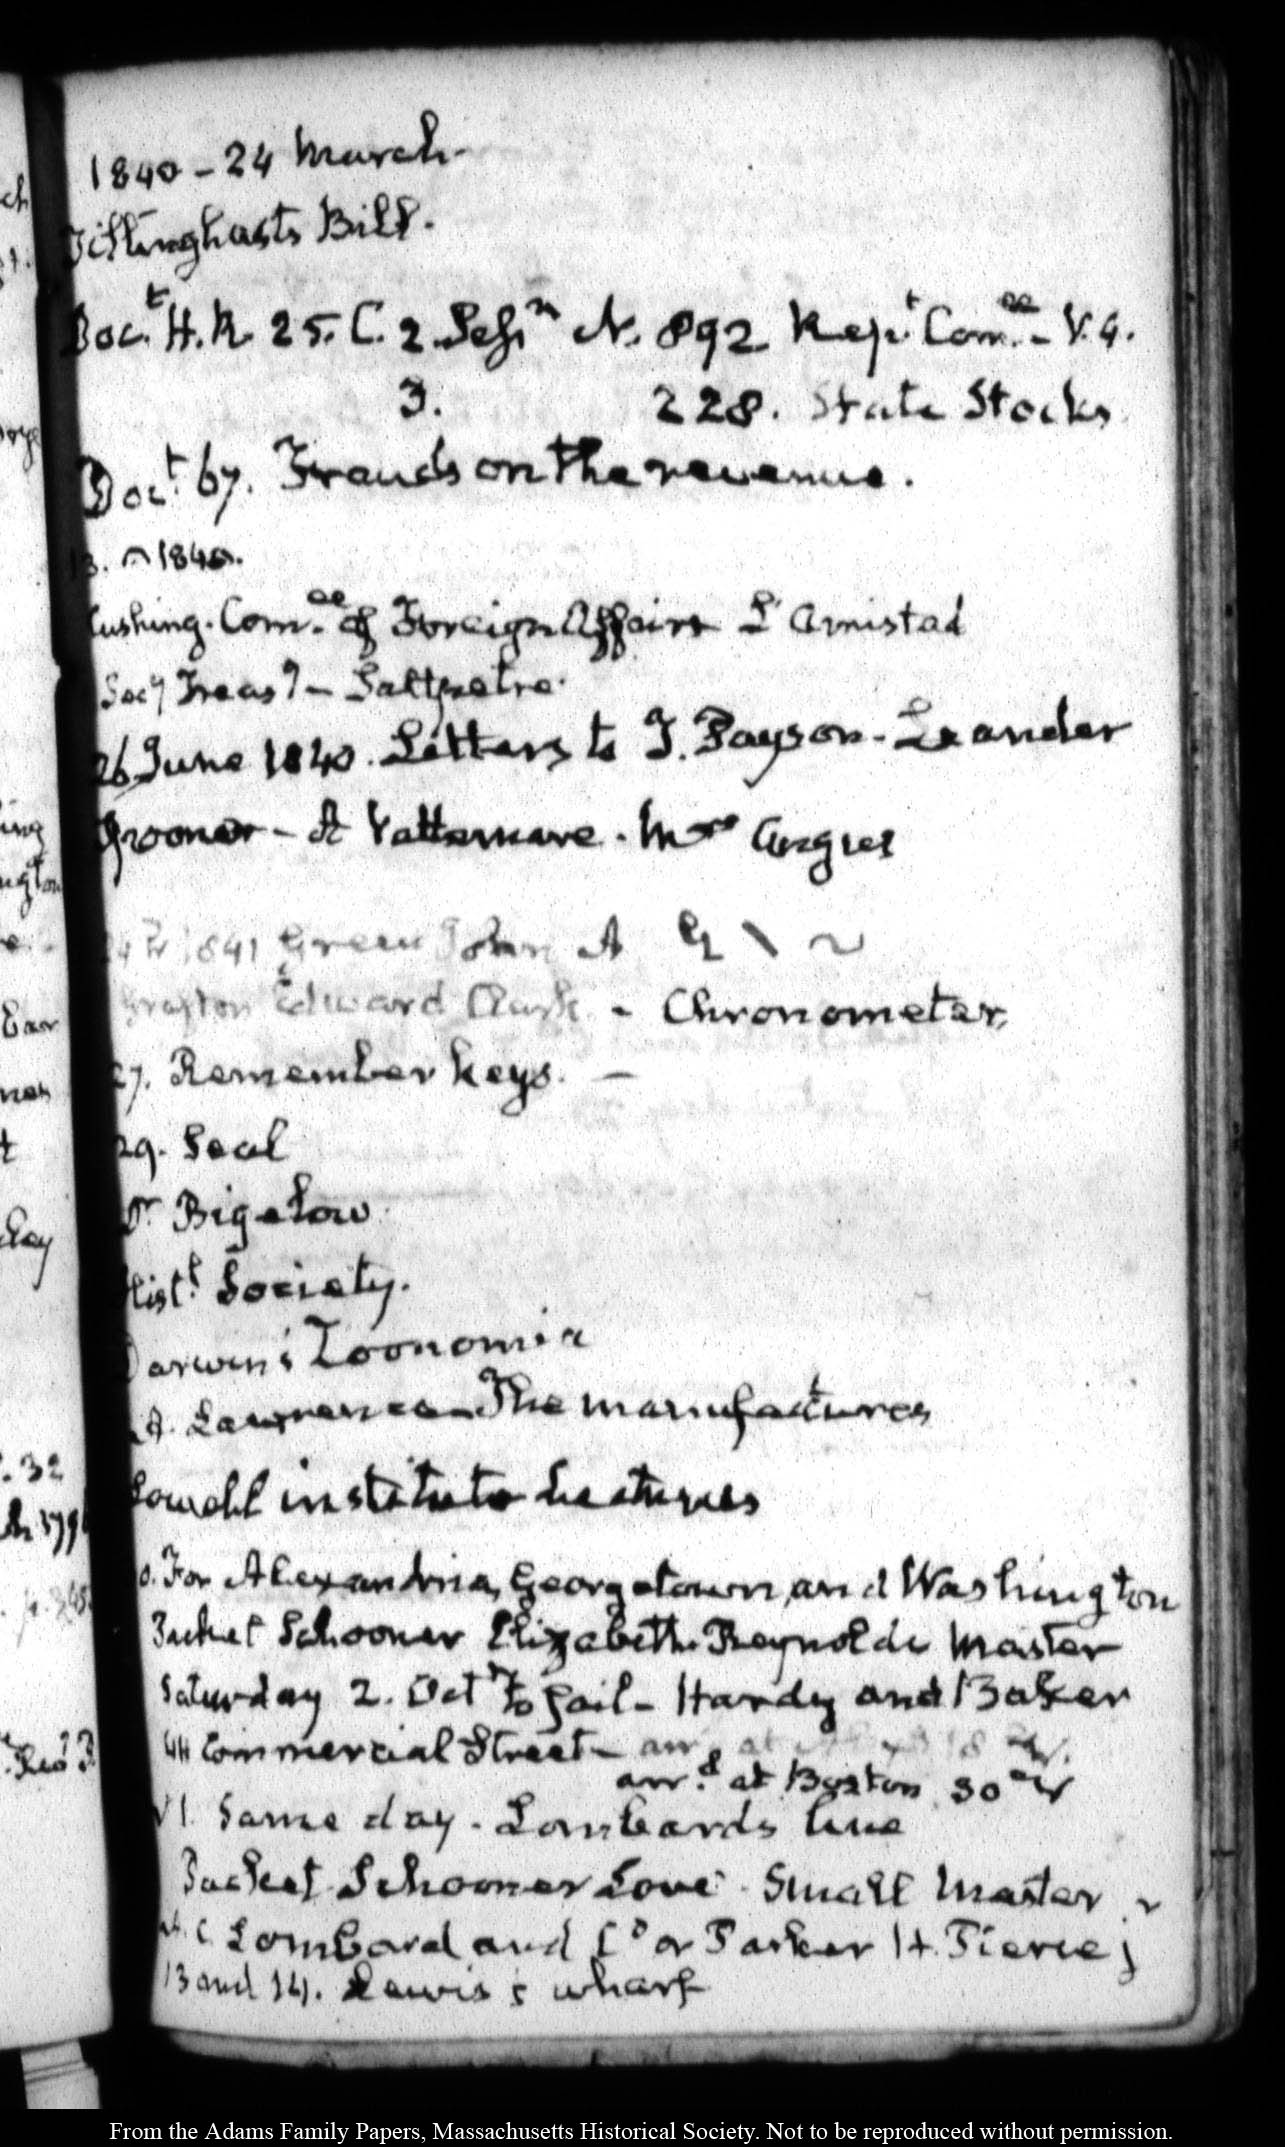 1840 - 24 March -
Tillinghasts Bill.
Doct. H.R. 25. C. 2. Sessn N. 892 Rept. Comee - V. 4.
3. 228. State Stocks
Doct. 67. Frauds on the revenue.
13. 1840.
Cushing. Comee. of Foreign Affairs L'Amistad
Secy Treasy - Saltpetre.
26 June 1840. Letters to J. Payson - Leander
Grooner - A Vattemare. Mrs Angier
1841 Green John A
Grafton Edward Clark - Chronometer,
27. Remember keys. -
29. Seal
Dr Bigelow
Histl. Society.
Darwin's Zoonomia
A. Lawrence The manufactures
Lowell institute Lectures
For Alexandria, Georgetown, and Washington
Packet Schooner Elizabeth. Reynolds Master
Saturday 2. Oct To sail - Hardy and Baker
44 Commercial Street - arr at 18
arrd. at Boston 30
Same day - Lombards line
Packet Schooner Love. Small Master
Lombard and Co or Parker H. Pierce
13 and 14. Lewis's wharf
From the Adams Family Papers, Massachusetts Historical Society. Not to be reproduced without permission.